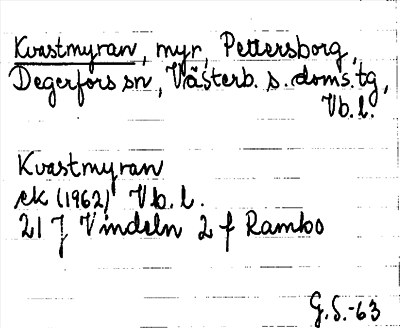 Kvastmyran, myr, Pettersborg,
Degerfors sn, Västerb. s. doms.tg,
Vb. l.
Kvastmyran
ek (1962) Vb. l.
21 J Vindeln 2 f Rambo
G.S.-63